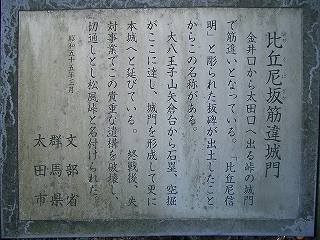 比丘尼坂筋違城門
金井口から太田口へ出る峠の城門
で筋違いとなっている。「比丘尼信
明」と彫られた坂碑が出土したこと
からこの名称がある。
大八王子山矢倉台から石塁、空掘
がここに達し、城門を形成して更に
本城へと延びている。終戦後、失
対事業でこの貴重な遺構を破壊し、
切通しとし松風峠と名付けられた。
昭和五十五年三月
文部省
群馬県
太田市